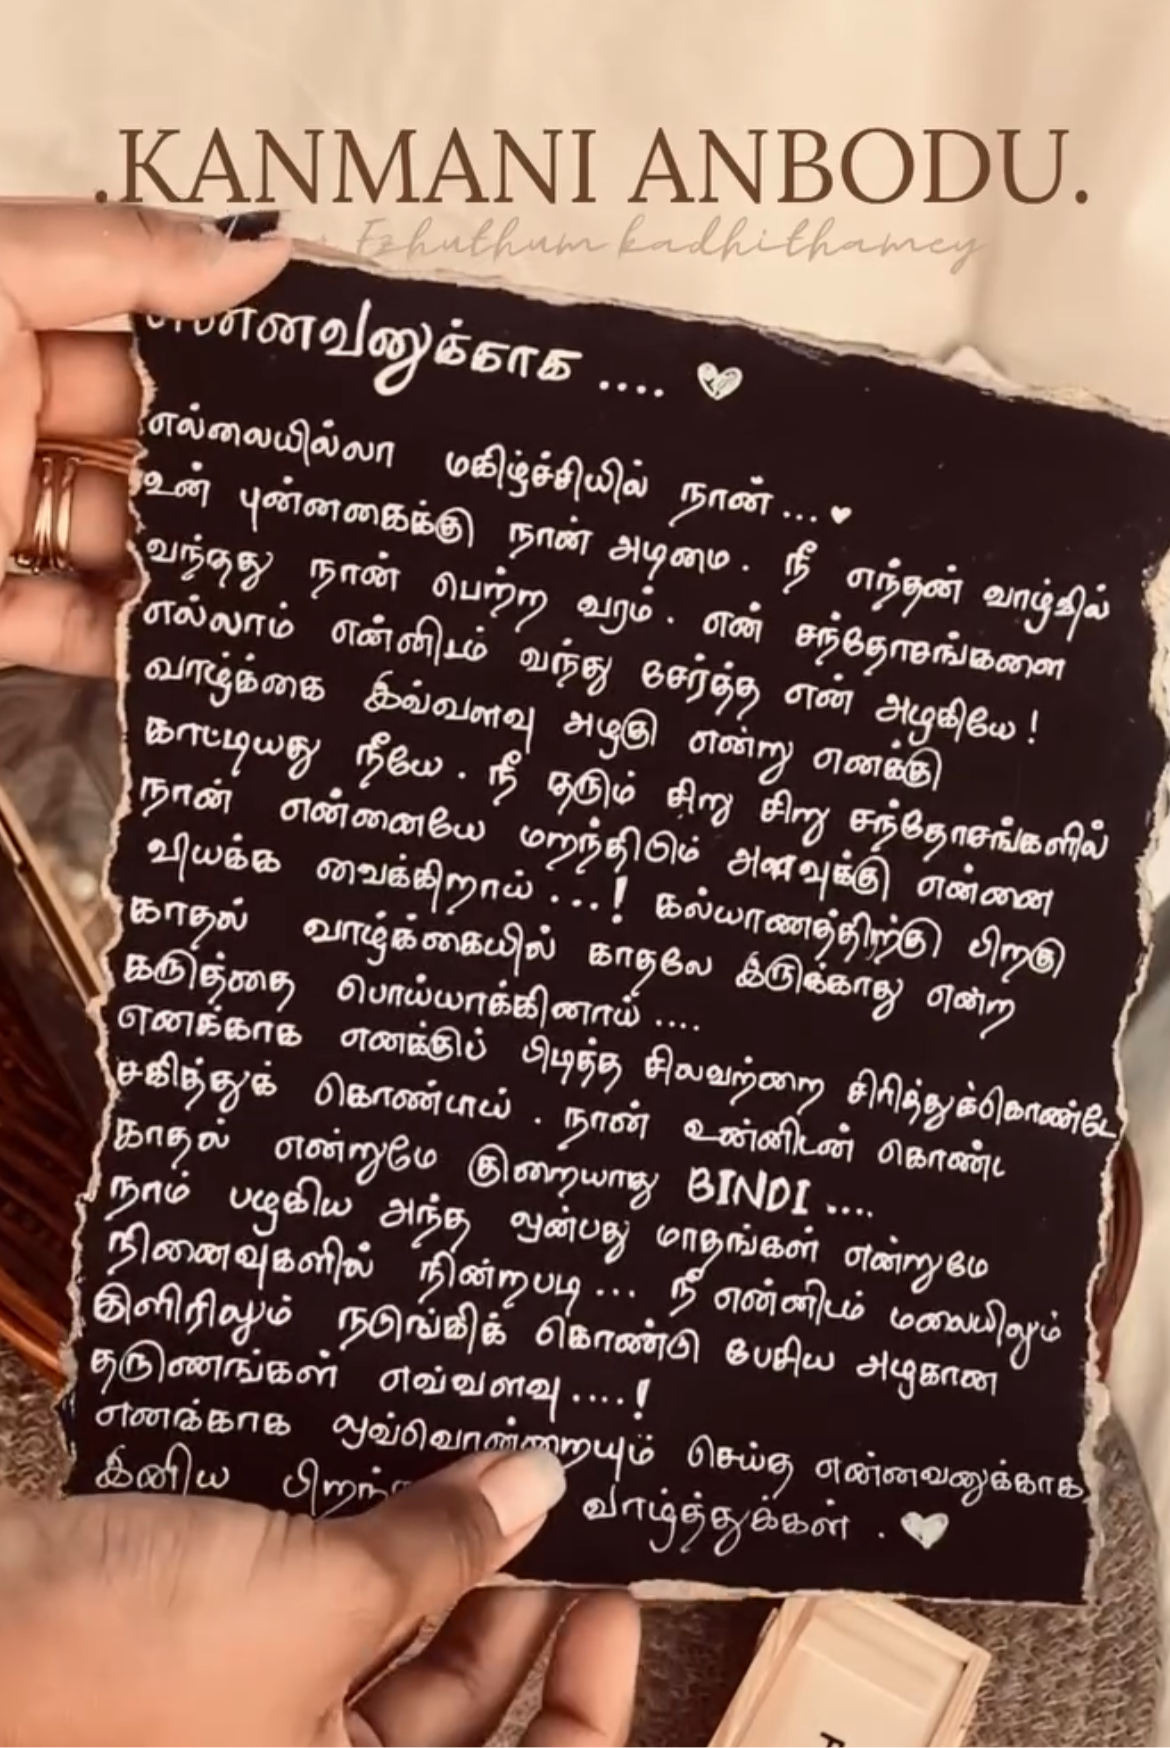 .KANMANI ANBODU.
Ezhuthum kadhithamey
என்னவனுக்காக .... ♥
எல்லையில்லா மகிழ்ச்சியில் நான் ... ♥
உன் புன்னகைக்கு நான் அடிமை. நீ எந்தன் வாழ்வில்
வந்தது நான் பெற்ற வரம். என் சந்தோசங்களை
எல்லாம் என்னிடம் வந்து சேர்த்த என் அழகியே!
வாழ்க்கை இவ்வளவு அழகு என்று எனக்கு
காட்டியது நீயே. நீ தரும் சிறு சிறு சந்தோசங்களில்
நான் என்னையே மறந்திடும் அளவுக்கு என்னை
வியக்க வைக்கிறாய் ...! கல்யாணத்திற்கு பிறகு
காதல் வாழ்க்கையில் காதலே இருக்காது என்ற
கருத்தை பொய்யாக்கினாய் ....
எனக்காக எனக்குப் பிடித்த சிலவற்றை சிரித்துக்கொண்டே
சகித்துக் கொண்டாய். நான் உன்னிடன் கொண்ட
காதல் என்றுமே குறையாது BINDI ....
நாம் பழகிய அந்த ஒன்பது மாதங்கள் என்றுமே
நினைவுகளில் நின்றபடி ... நீ என்னிடம் மலையிலும்
குளிரிலும் நடுங்கிக் கொண்டு பேசிய அழகான
தருணங்கள் எவ்வளவு ....!
எனக்காக ஒவ்வொன்றையும் செய்த என்னவனுக்காக
இனிய வாழ்த்துக்கள். ♥